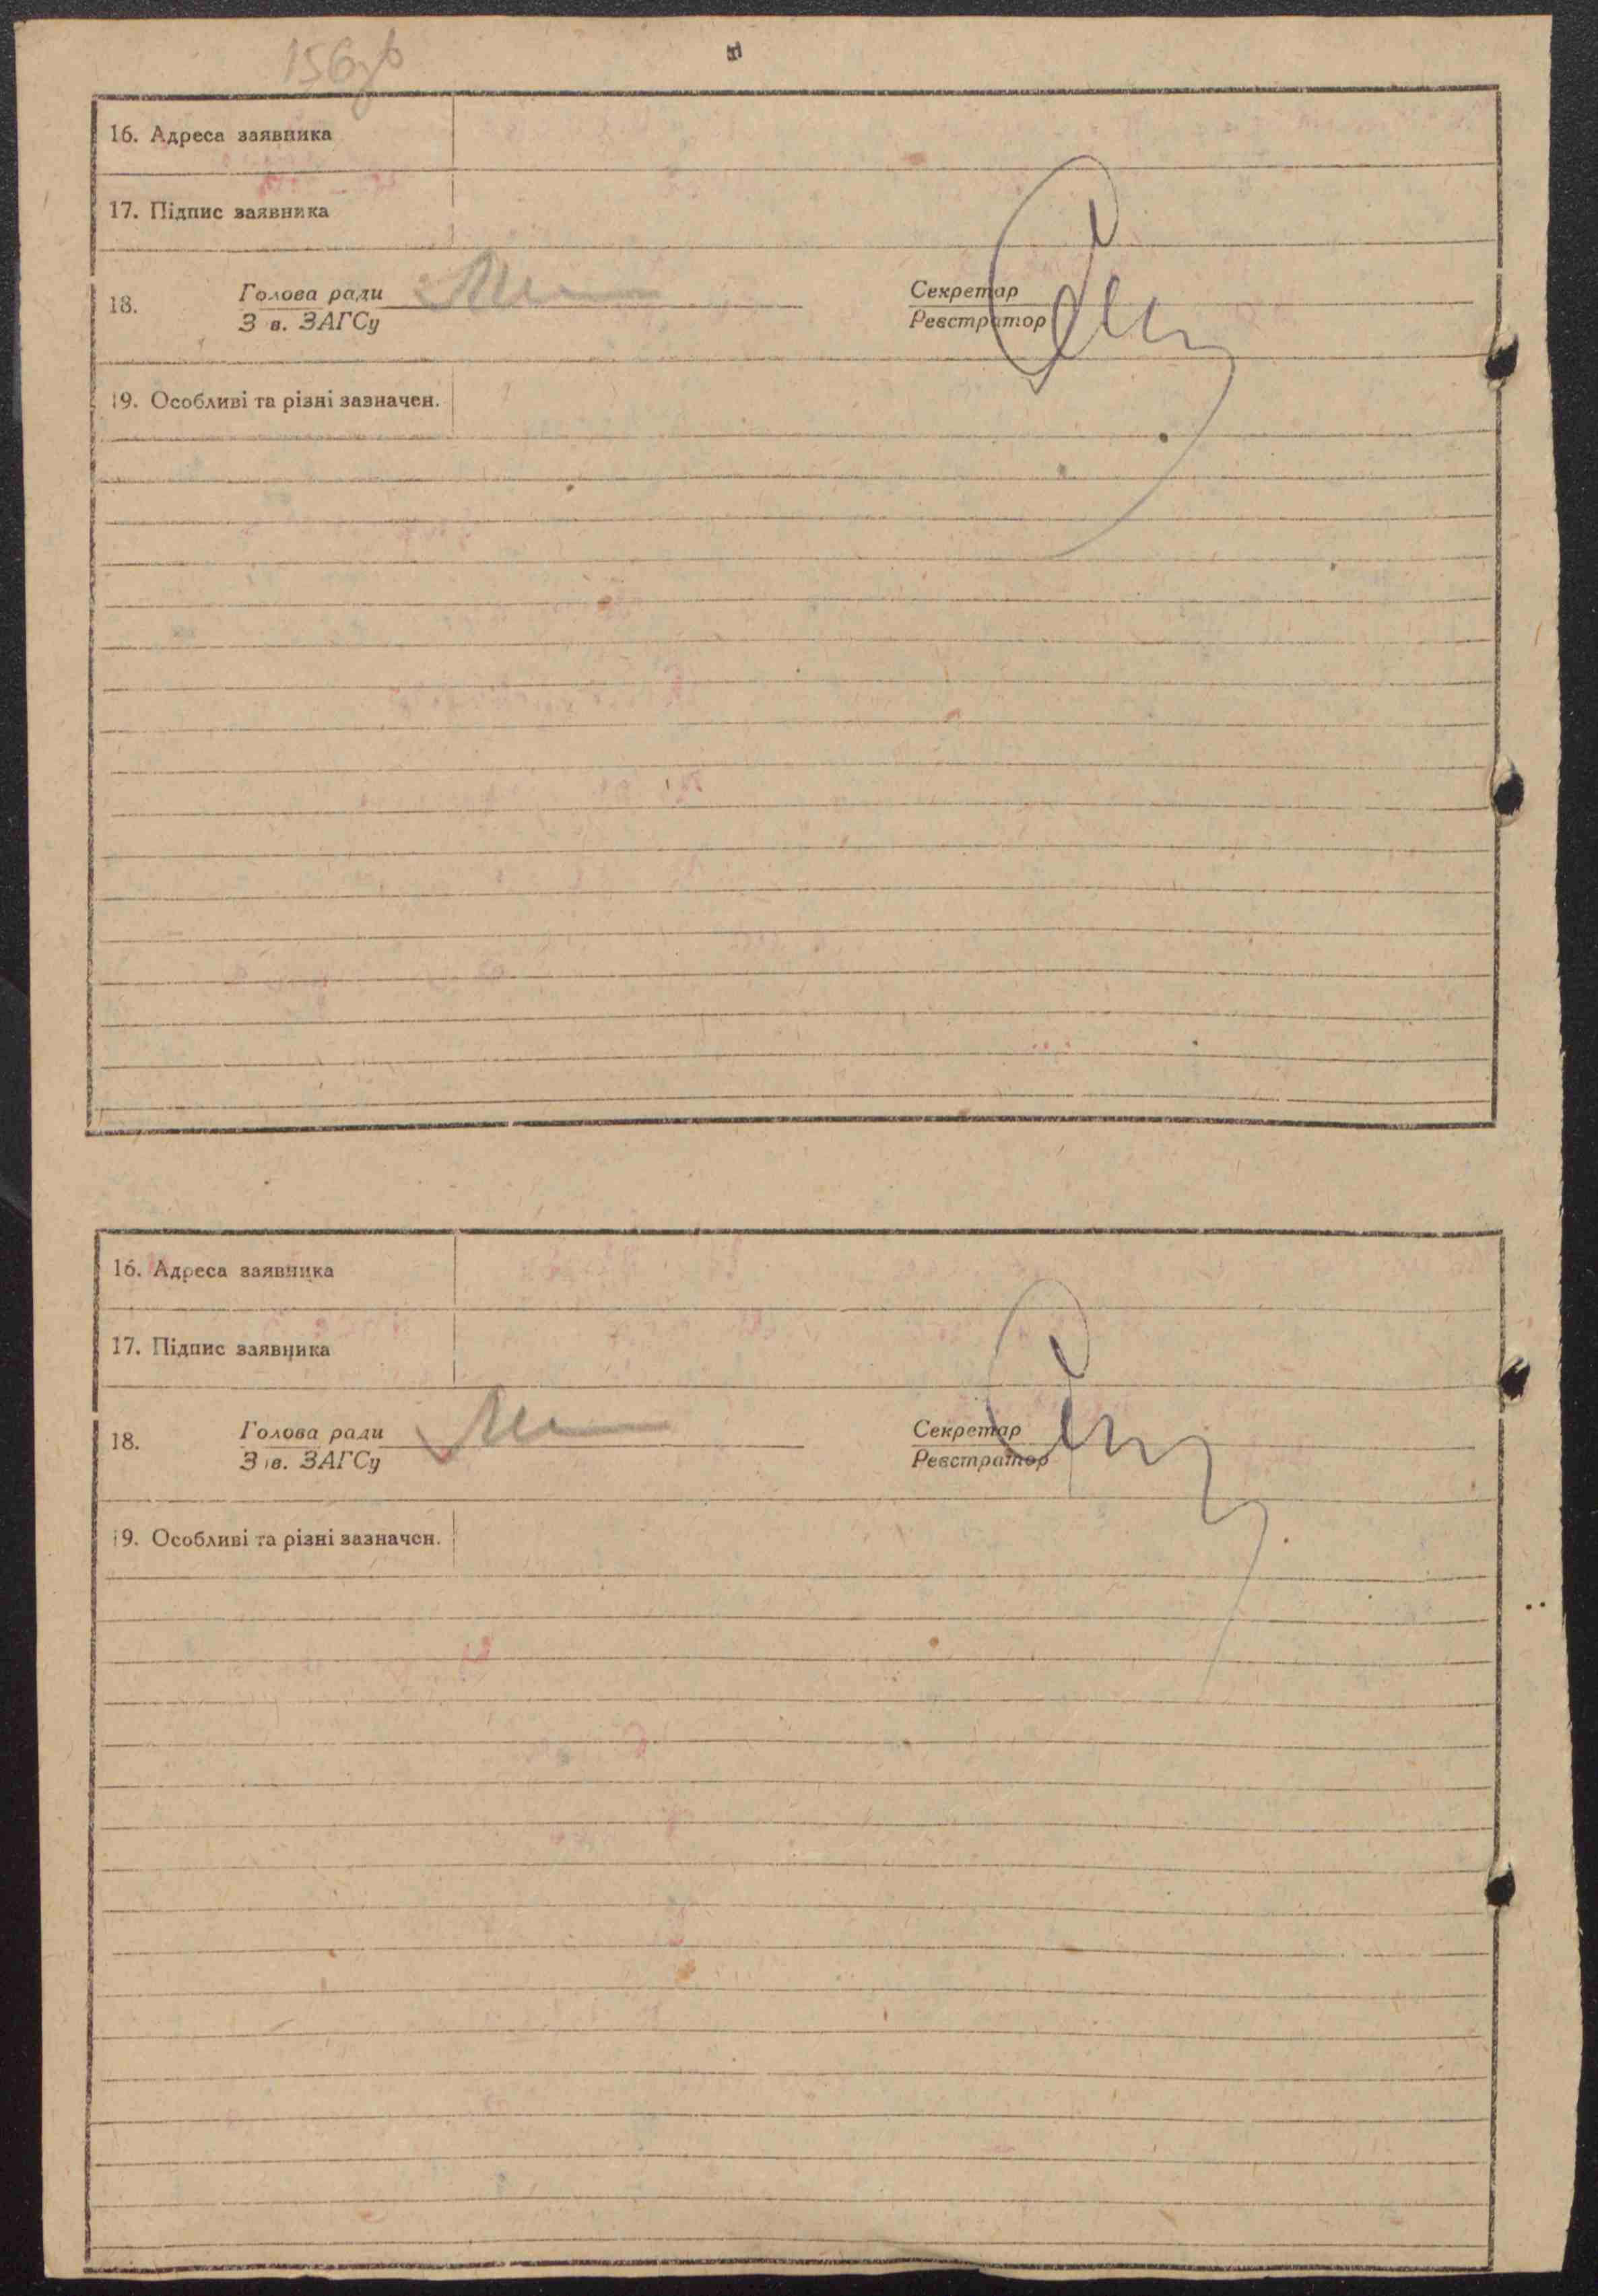 156зв
16. Адреса заявника
17. Підпис заявника
18. Голова ради Секретар
З в. ЗАГСу Реєстратор
19. Особливі та різні зазначен.
16. Адреса заявника
17. Підпис заявника
18. Голова ради Секретар
З в. ЗАГСу Реєстратор
19. Особливі та різні зазначен.